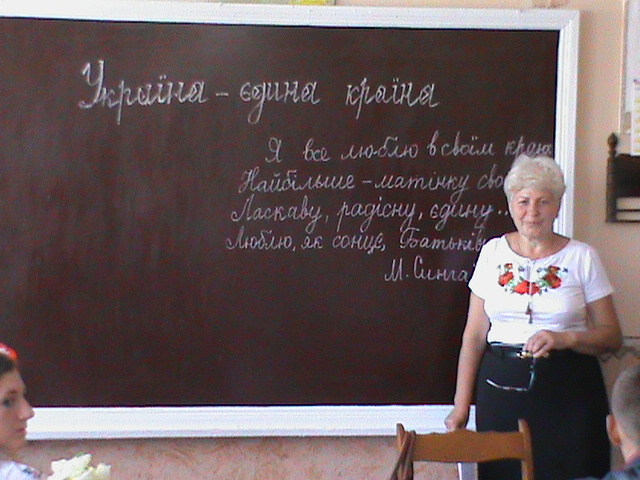 Україна – єдина країна
Я все люблю в своїм краю
Найбільше – матінку
Ласкаву, радісну, єдину..
Люблю, як сонце,
М.